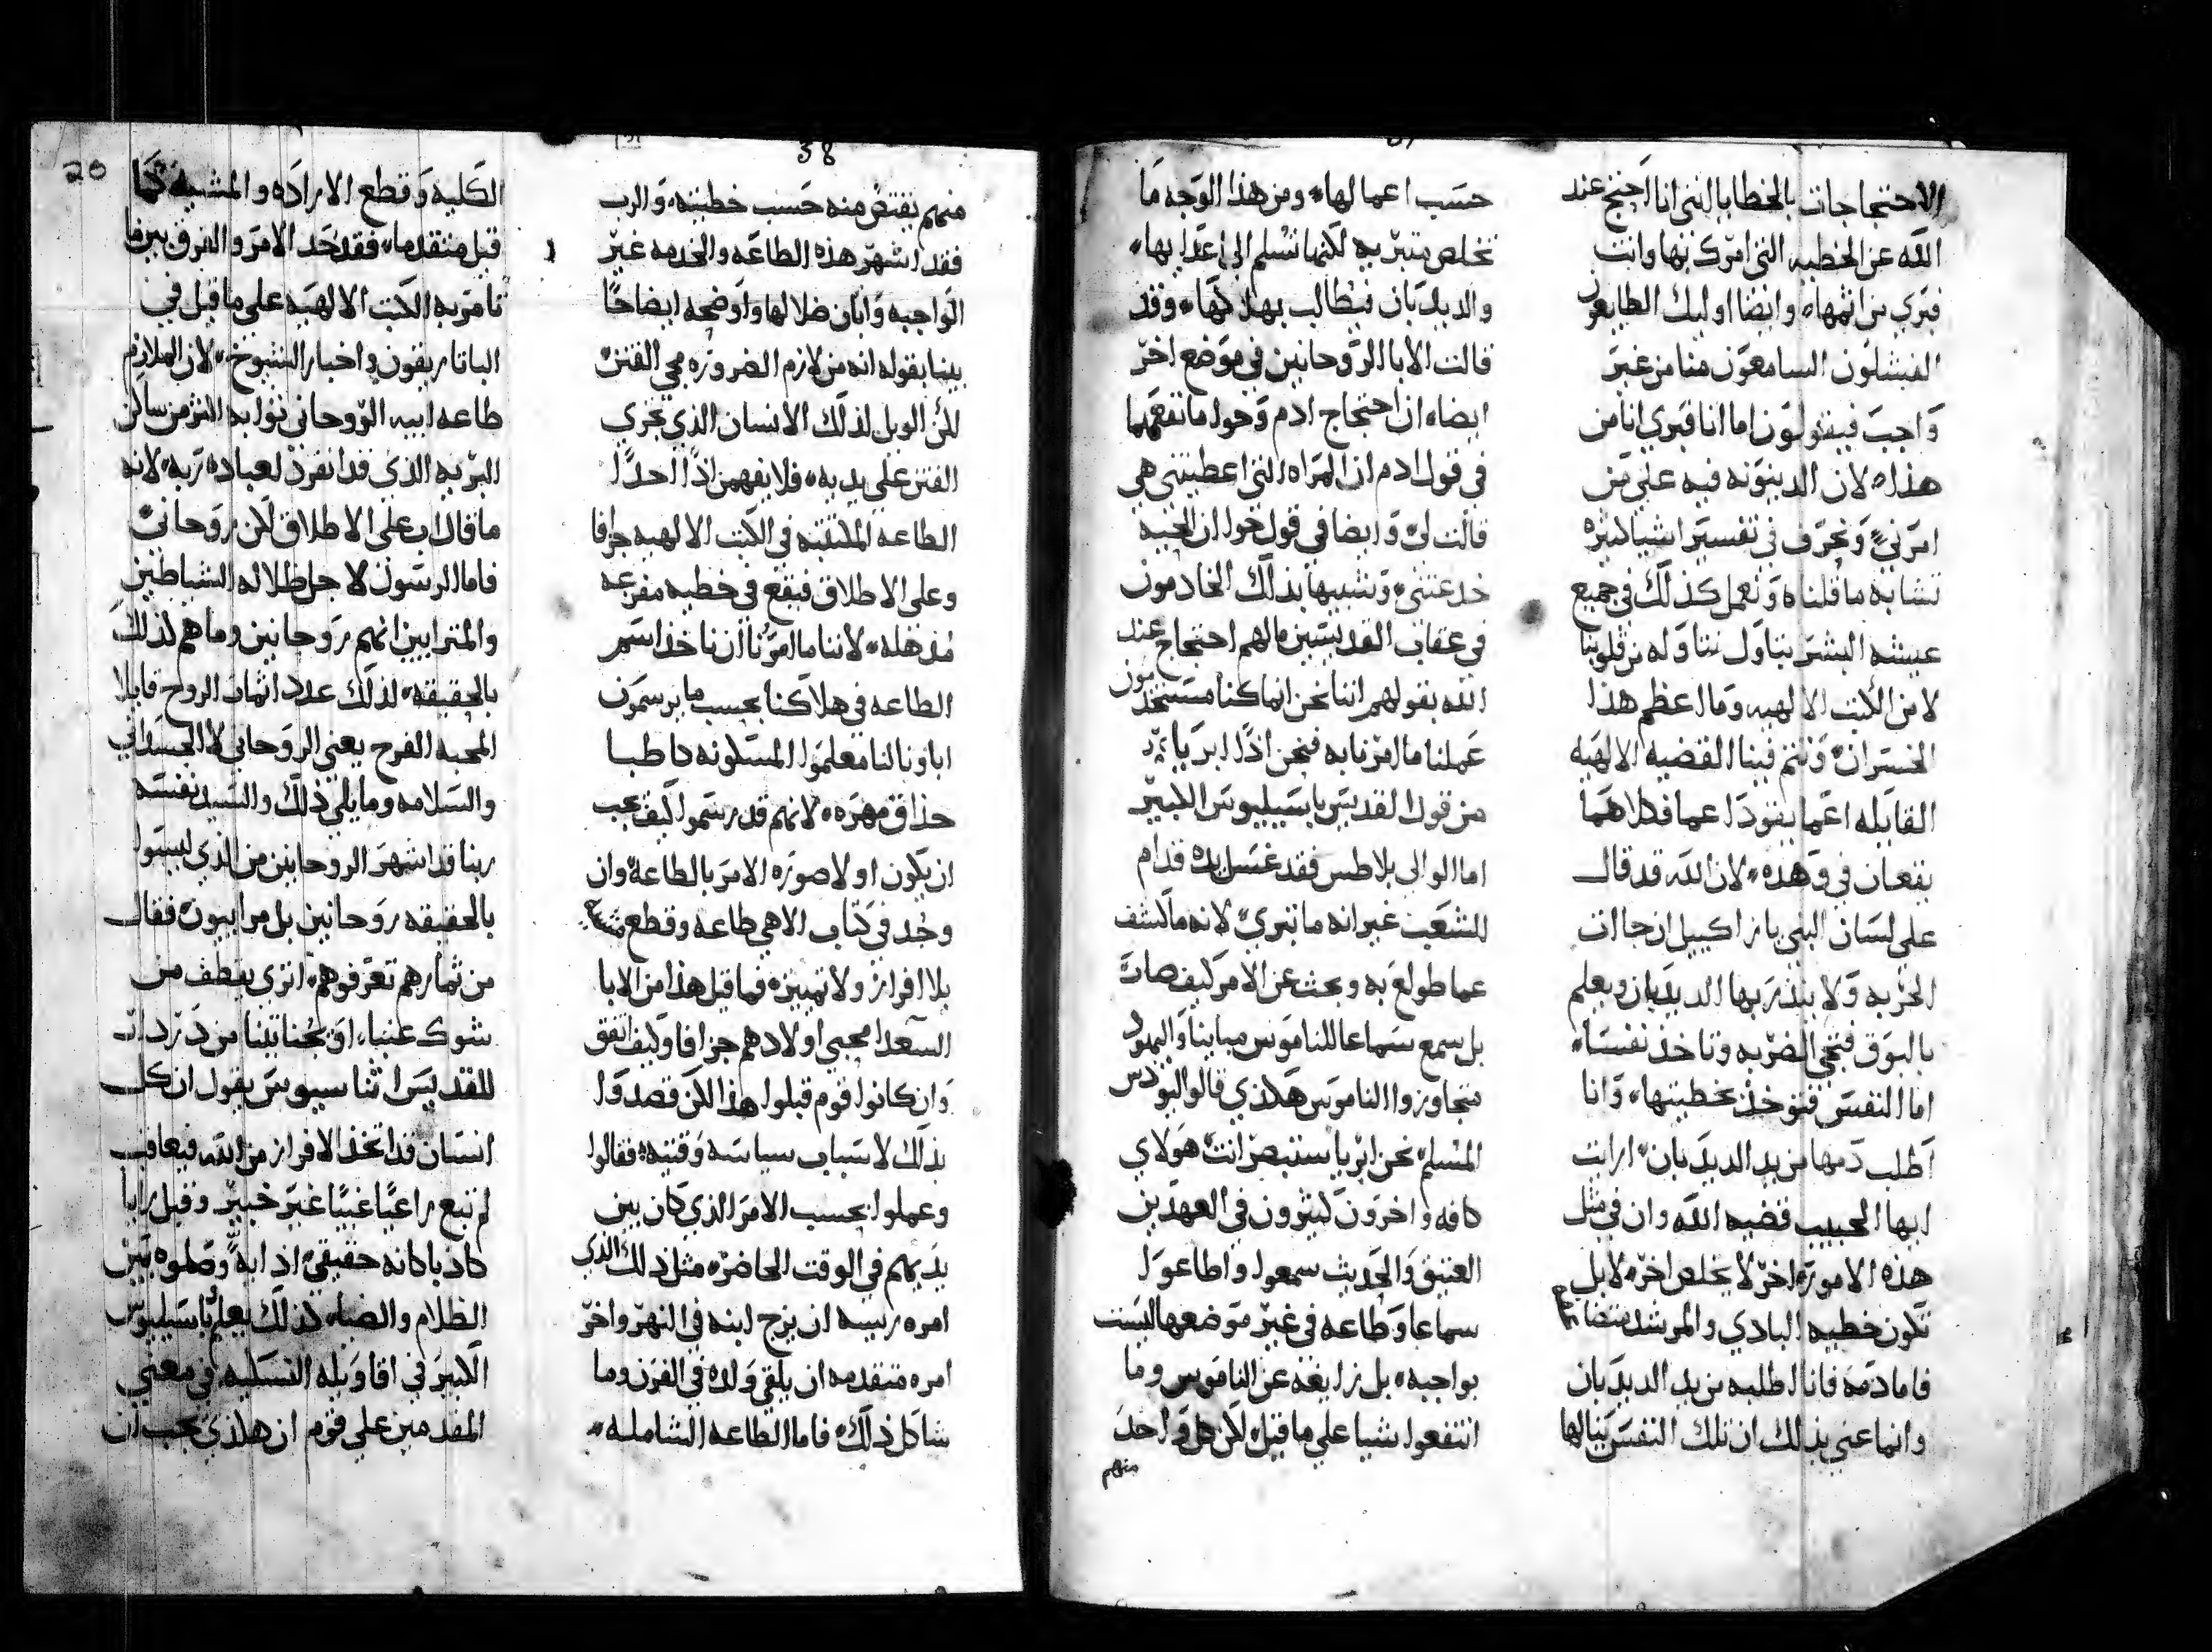 الاحتجاجات بالخطايا التي انا احتج عند
الله عن الخطيه التي امرك بها وانت
فبري من اثمها، وايضا اوليك الطايعون
الفيشلون السامعون منا من غير
واجب فيقولون اما انا فبري انا من
هذا، لان الدينونه فيه علي من
امرني، ونحرف في تفسير اشيا كثيره
تشابه ما قلناه ونعمل كذلك في جميع
عيشه البشر نتاول نتاوله من قلوبنا
لا من الكتب الالهيه وما اعظم هذا
الخسران، وتتم فينا القضيه الالهيه
القايله اعما يقود اعما فكلاهما
يقعان في وهده، لان الله قد قال
علي لسان النبي يازاكييل ان جاات
الحربه ولا ينذر بها الديدبان ويعلم
بالبوق فتجي الضربه وتاخذ نفسا،
اما النفس فتوخذ بخطيتها، وانا
اطلب دمها من يد الديدبان، ارايت
ايها الحبيب قضيه الله وان في مثل
هذه الامور اخر لا يخلص اخر، لا بل
تكون خطيه البادي والمرشد
فاما دمه فانا اطلبه من يد الديدبان
وانما عني بذلك ان تلك النفس ينالها
حسب اعمالها، ومن هذا الوجه ما
تخلص متبريه لكنها تسلم الي اعدايها،
والديدبان فيطالب بهلاكها، وقد
قالت الابا الروحانين في موضع اخر
ايضا، ان احتجاج ادم وحوا ما نفعهما
في قول ادم ان المراه التي اعطيتني هي
قالت لي، وايضا في قول حوا ان الحيه
خدعتني، وشبيها بذلك الخادمون
في عقاب القديسين ما لهم احتجاج عند
الله بقولهم اننا نحن انما كنا مستخدمون
عملنا ما امرنا به فنحن اذا ابريا،
من قول القديس باسيليوس الكبير
اما الوالي بلاطس فقد غسل يده قدام
الشعب غير انه ما تبري، لانه ما كشف
عما طولع به وبحث عن الامر كيف صات
بل سمع سماعا للناموس مباينا واليهود
متجاوزوا الناموس هكذي قالوا ليودس
المسلم، نحن ابريا ستبصر انت، هولاي
كافه واخرون كثيرون في العهدين
العتيق والحديث سمعوا واطاعوا
سماعا وطاعه في غير موضعها ليست
بواجبه، بل زايغه عن الناموس وما
انتفعوا شيا علي ما قيل، لان كل واحد
منهم
38
منهم يقتص منه حسب خطيته، والرب
فقد اشهر هذه الطاعه والخدمه غير
الواجبه وابان ضلالها واوضحه ايضاحا
بينا بقوله انه من لازم الضروره مجي الفتن،
لكن الويل لذلك الانسان الذي تجري
الفتن علي يديه، فلا يفهمن اذا احدا
الطاعه المكتتبه في الكتب الالهيه جزافا
وعلي الاطلاق فيقع في خطيه مفزعه
مذهله، لاننا ما امرنا ان ناخذ اسم
الطاعه في هلاكنا بحسب ما يرسمون
اباونا لنا معلموا المسكونه كاطبا
حذاق مهره، لانهم قد رسموا كيف يجب
ان يكون اولا صوره الامر بالطاعه، وان
وجد في كتاب الاهي طاعه وقطع
بلا افراز ولا تمييزه فما قيل هذا من الابا
السعدا محبي اولادهم جزافا وكيف اتفق
وان كانوا قوم قبلوا هذا لكن قصدوا
بذلك لاسباب سياسه وقتيه، فقالوا
وعملوا بحسب الامر الذي كان بين
يديهم في الوقت الحاضر، مثل ذلك الذي
امره رييسه ان يزج ابنه في النهر، واخر
امره متقدمه ان يلقي ولده في الفرن وما
شاكل ذلك، فاما الطاعه الشامله،
20
الكليه وقطع الاراده والمشيه كما
قيل متقدما، فقد حد الامر والفرق بين ما
تامر به الكتب الالهيه علي ما قيل في
الباتاريقون واخبار الشيوخ، لان الملازم
طاعه ابيه الروحاني ثوابه اكثر من ساكن
البريه الذي قد انفرد لعباده ربه، لانه
ما قال اب علي الاطلاق لكن روحاني،
فاما الرسول لاجل ظلاله الشياطين
والمترايين انهم روحانين وما هم لذلك
بالحقيقه، لذلك عدد اثمات الروح قايلا
المحبه الفرح يعني الروحاني لا الجسداني
والسلامه وما يلي ذلك والسيد نفسه
ربنا قد اشهر الروحانين من الذي ليسوا
بالحقيقه روحانين بل مراييون، فقال
من ثمارهم تعرفوهم، اتري يقطف من
شوك عنبا، او يجنا تينا من دردار
للقديس اثناسيوس يقول ان كل
انسان قد اتخذ الافراز من الله فيعاقب
لم تبع راعيا غبيا غير خبير وقبل رايا
كاذبا كانه حقيقي،
الظلام والضيا، كذلك يعلم باسيليوس
الكبير في اقاويله النسكيه في معني
المقدمين علي قوم ان هكذي يجب ان